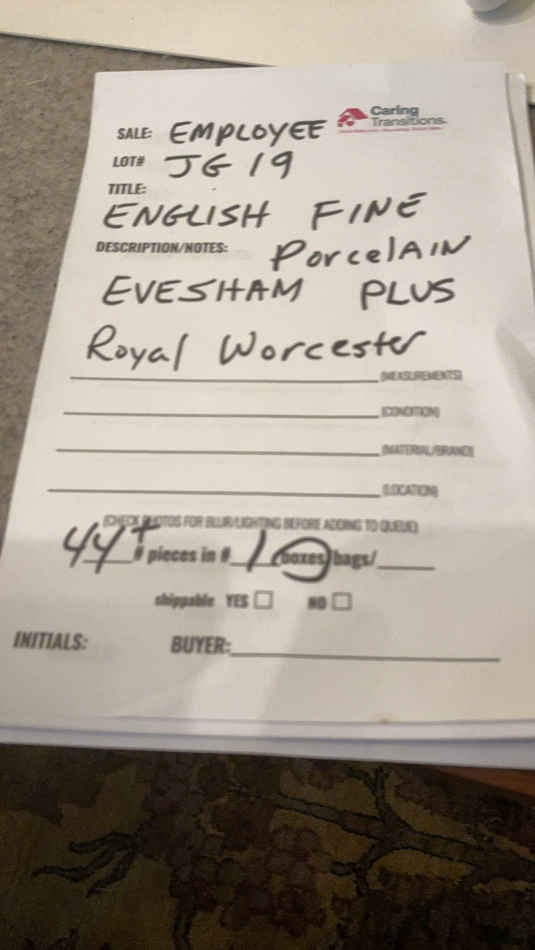 Caring
Transitions.
SALE: EMPLOYEE
LOT# JG 19
TITLE:
ENGLISH FINE
DESCRIPTION/NOTES: PorcelAIN
EVESHAM PLUS
Royal Worcester
(MEASUREMENTS)
(CONDITION)
(MATERIAL/BRAND)
(LOCATION)
(CHECK PHOTOS FOR BLUR/LIGHTING BEFORE ADDING TO QUEUE)
44+ # pieces in # 1 boxes/bags/
shippable YES NO
INITIALS: BUYER: